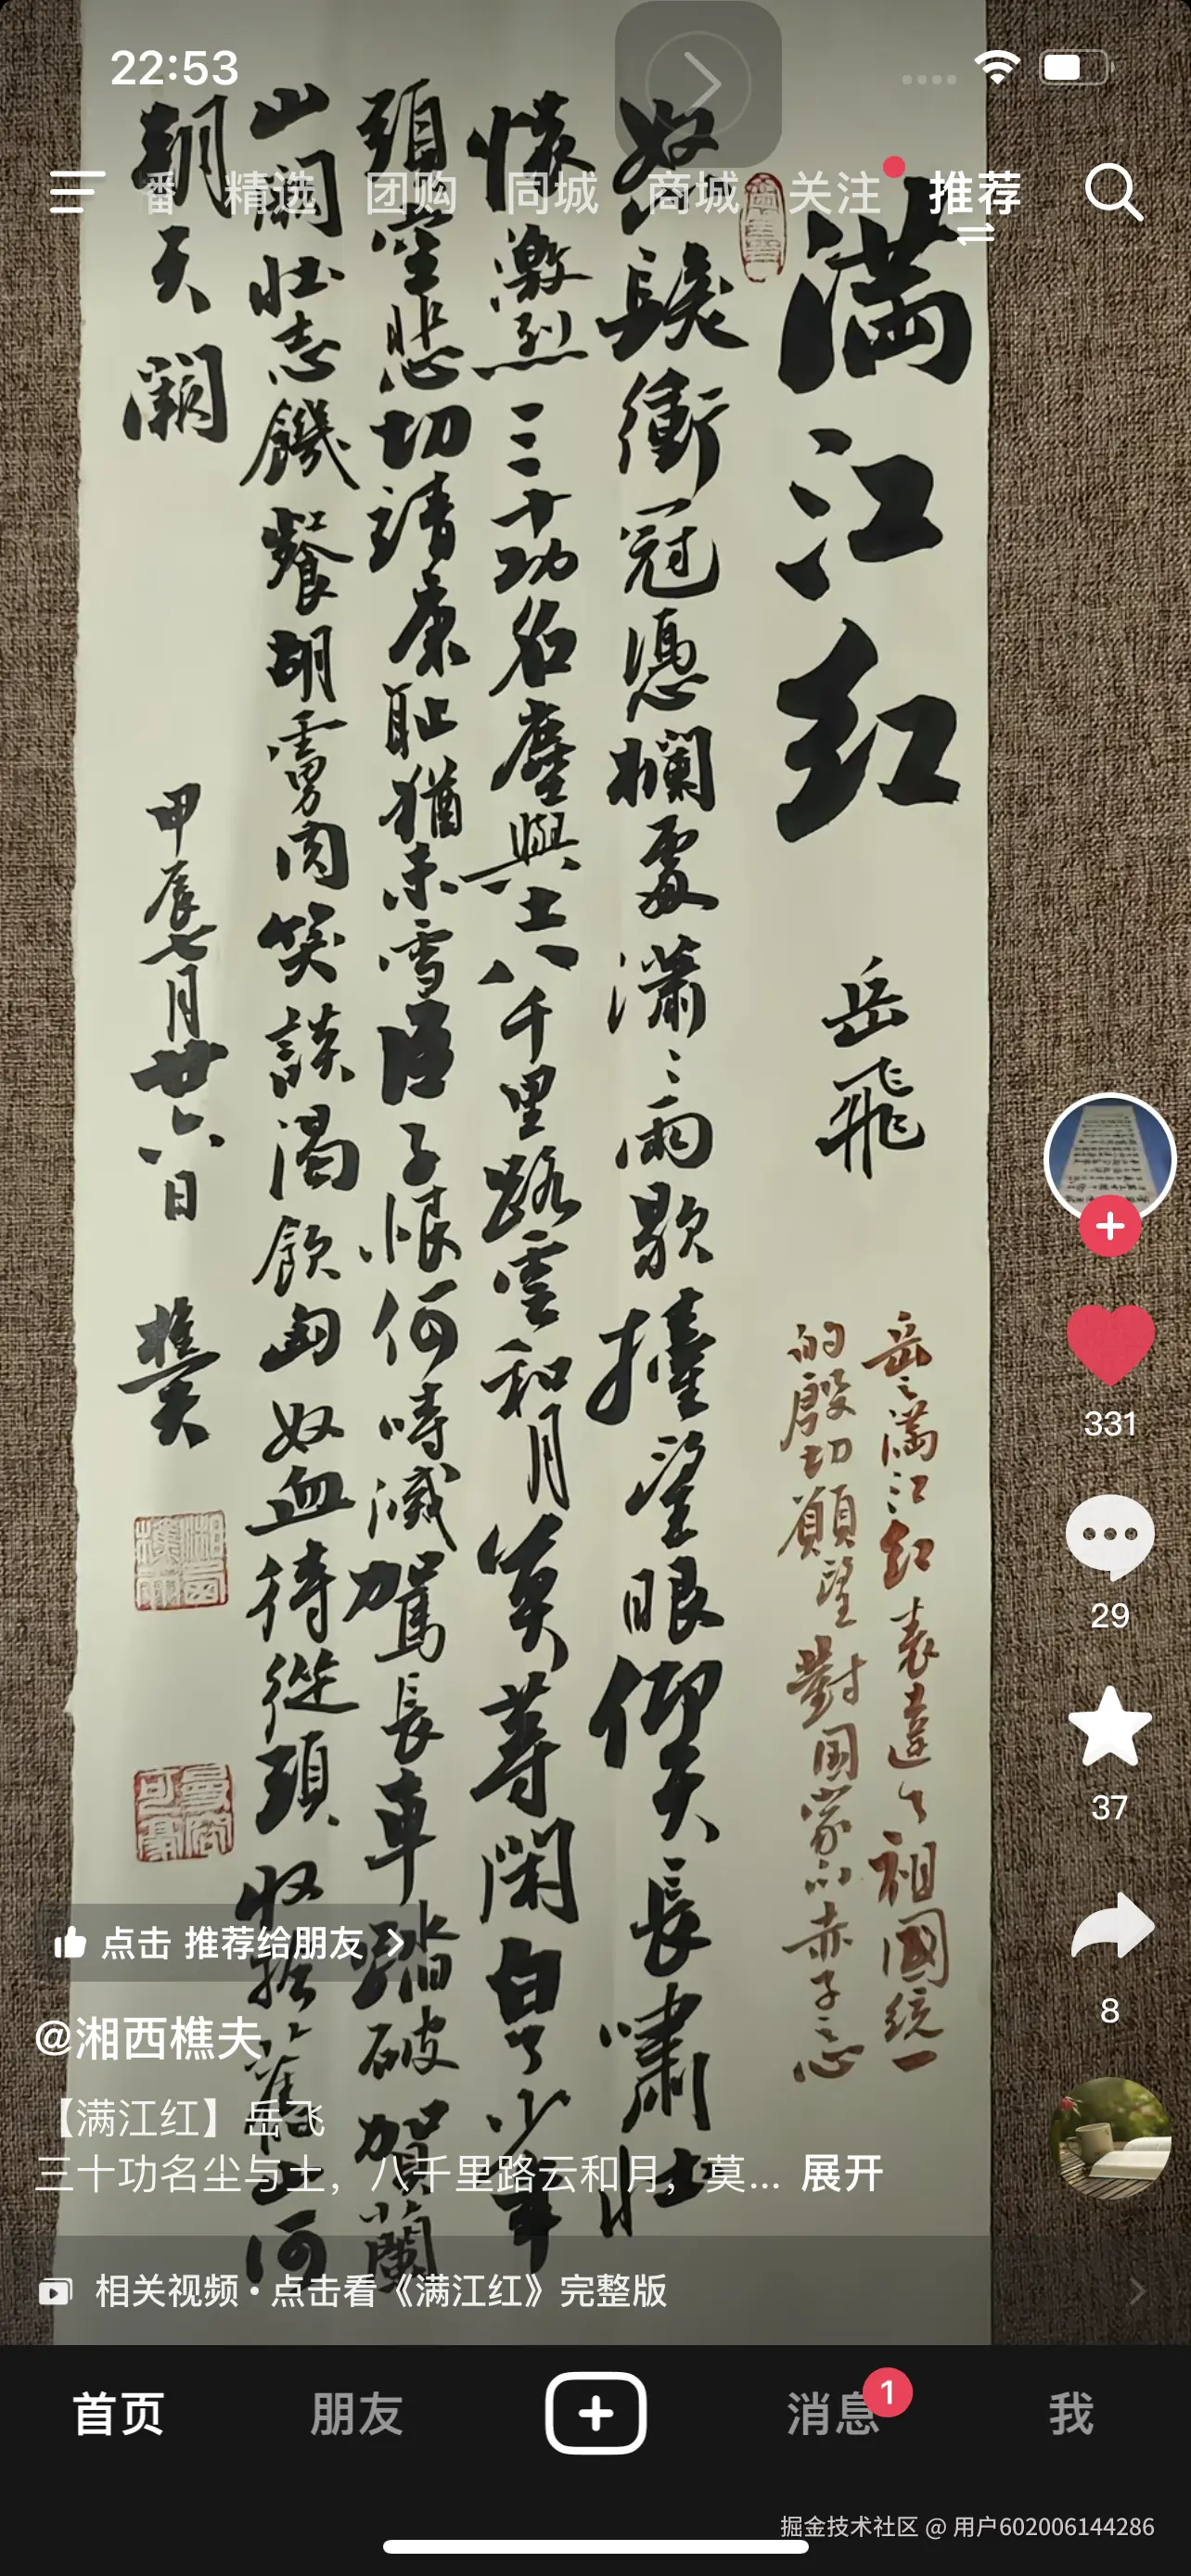 22:53
番 精选 团购 同城 商城 关注 推荐
满江红
岳飛
岳之满江红表達了祖國统一
的殷切願望對国家的赤子之心
怒髮衝冠憑欄處瀟〻雨歇擡望眼仰天長嘯壮
懷激烈三十功名塵與土八千里路雲和月莫等閑白了少年
頭空悲切靖康耻猶未雪臣子恨何時滅駕長車踏破賀蘭
山闕壮志饑餐胡虜肉笑談渴飲匈奴血待從頭收拾舊山河
朝天闕
甲辰七月廿六日
樵夫
331
29
37
8
点击 推荐给朋友
@湘西樵夫
【满江红】岳飞
三十功名尘与土，八千里路云和月，莫... 展开
相关视频 • 点击看《满江红》完整版
首页 朋友 消息 1 我
掘金技术社区 @ 用户602006144286